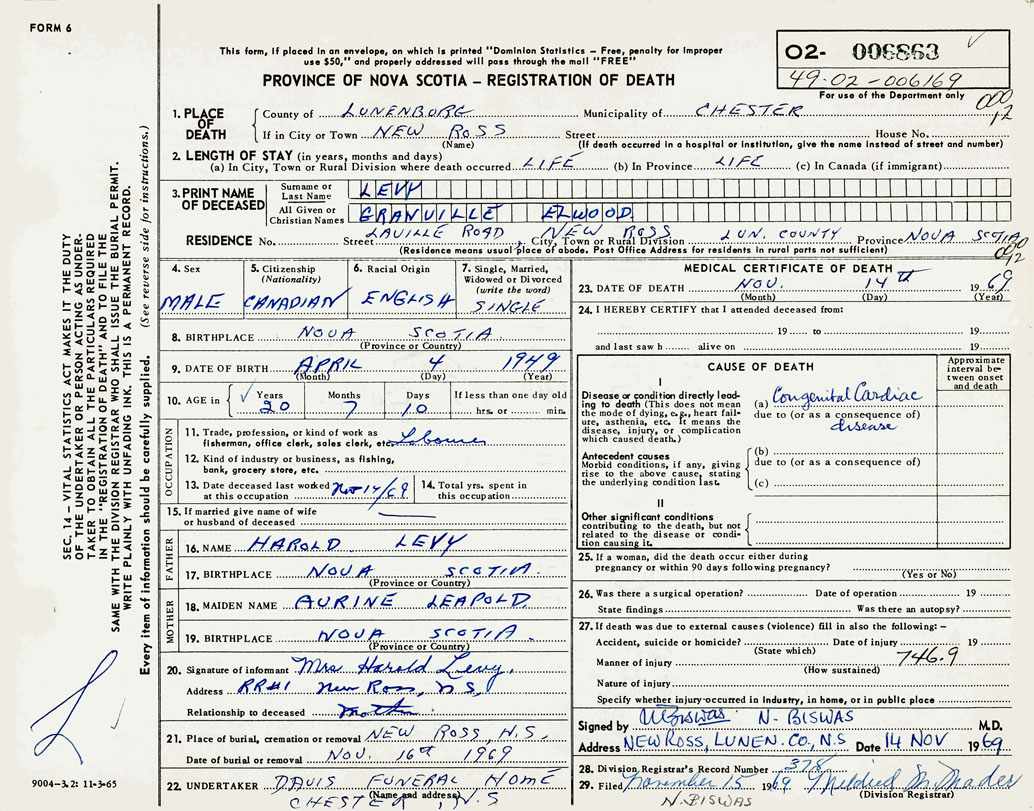 FORM 6
This form, if placed in an envelope, on which is printed "Dominion Statistics – Free, penalty for improper
use $50," and properly addressed will pass through the mail "FREE"
PROVINCE OF NOVA SCOTIA – REGISTRATION OF DEATH
02- 006863
49-02-006169
For use of the Department only
1. PLACE OF DEATH
County of LUNENBURG Municipality of CHESTER
If in City or Town NEW ROSS Street House No.
(Name) (If death occurred in a hospital or institution, give the name instead of street and number)
2. LENGTH OF STAY (in years, months and days)
(a) In City, Town or Rural Division where death occurred LIFE (b) In Province LIFE (c) In Canada (if immigrant)
3. PRINT NAME OF DECEASED
Surname or Last Name LEVY
All Given or Christian Names GRANVILLE ELWOOD
RESIDENCE No. Street LAVILLE ROAD, City, Town or Rural Division NEW ROSS LUN. COUNTY Province NOVA SCOTIA
(Residence means usual place of abode. Post Office Address for residents in rural parts not sufficient)
4. Sex MALE
5. Citizenship (Nationality) CANADIAN
6. Racial Origin ENGLISH
7. Single, Married, Widowed or Divorced (write the word) SINGLE
8. BIRTHPLACE NOVA SCOTIA
(Province or Country)
9. DATE OF BIRTH APRIL 4 1949
(Month) (Day) (Year)
10. AGE in Years 20 Months 7 Days 10 If less than one day old hrs. or min.
OCCUPATION
11. Trade, profession, or kind of work as
fisherman, office clerk, sales clerk, etc. Labourer
12. Kind of industry or business, as fishing,
bank, grocery store, etc.
13. Date deceased last worked at this occupation Nov 14/69
14. Total yrs. spent in this occupation
15. If married give name of wife
or husband of deceased
FATHER
16. NAME HAROLD LEVY
17. BIRTHPLACE NOVA SCOTIA.
(Province or Country)
MOTHER
18. MAIDEN NAME AURINE LEAPOLD.
19. BIRTHPLACE NOVA SCOTIA.
(Province or Country)
20. Signature of informant Mrs Harold Levy,
Address RR#1 New Ross, N.S,
Relationship to deceased Mother
21. Place of burial, cremation or removal NEW ROSS N.S.
Date of burial or removal NOV. 16th 1969
22. UNDERTAKER DAVIS FUNERAL HOME
(Name and address)
CHESTER, N.S
MEDICAL CERTIFICATE OF DEATH
23. DATE OF DEATH NOV. 14th 1969
(Month) (Day) (Year)
24. I HEREBY CERTIFY that I attended deceased from:
19 to 19
and last saw h alive on 19
CAUSE OF DEATH
Approximate interval between onset and death
I
Disease or condition directly leading to death (This does not mean the mode of dying, e.g., heart failure, asthenia, etc. It means the disease, injury, or complication which caused death.)
(a) Congenital Cardiac
due to (or as a consequence of)
disease
Antecedent causes
Morbid conditions, if any, giving rise to the above cause, stating the underlying condition last.
(b)
due to (or as a consequence of)
(c)
II
Other significant conditions
contributing to the death, but not related to the disease or condition causing it.
25. If a woman, did the death occur either during
pregnancy or within 90 days following pregnancy?
(Yes or No)
26. Was there a surgical operation? Date of operation 19
State findings Was there an autopsy?
27. If death was due to external causes (violence) fill in also the following:–
Accident, suicide or homicide? Date of injury 19
(State which)
746.9
Manner of injury
(How sustained)
Nature of injury
Specify whether injury occurred in industry, in home, or in public place
Signed by N. BISWAS M.D.
Address NEW ROSS, LUNEN. CO., N.S Date 14 NOV 1969
28. Division Registrar's Record Number 378
29. Filed November 15 1969
(Division Registrar)
N. BISWAS
SEC. 14 – VITAL STATISTICS ACT MAKES IT THE DUTY
OF THE UNDERTAKER OR PERSON ACTING AS UNDER-
TAKER TO OBTAIN ALL THE PARTICULARS REQUIRED
IN THE "REGISTRATION OF DEATH" AND TO FILE THE
SAME WITH THE DIVISION REGISTRAR WHO SHALL ISSUE THE BURIAL PERMIT.
WRITE PLAINLY WITH UNFADING INK. THIS IS A PERMANENT RECORD.
Every item of information should be carefully supplied. (See reverse side for instructions.)
9004–3.2: 11-3-65